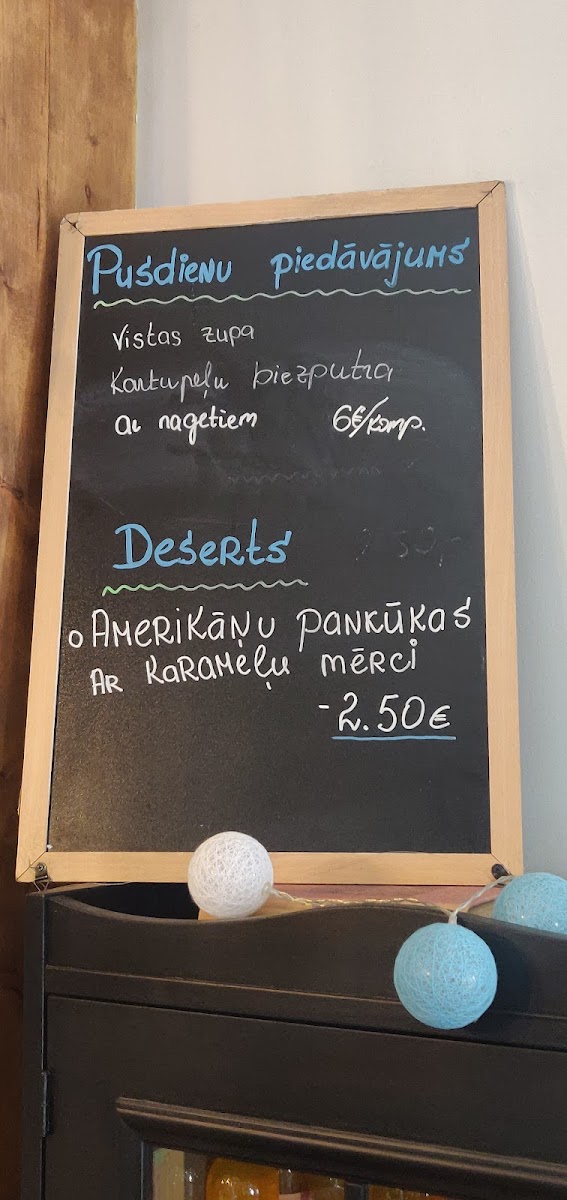 Pusdienu piedāvājums
Vistas zupa
Kartupeļu biezputra
ar nagetiem 6€/komp.
Deserts
o Amerikāņu pankūkas
Ar karameļu mērci
-2.50€